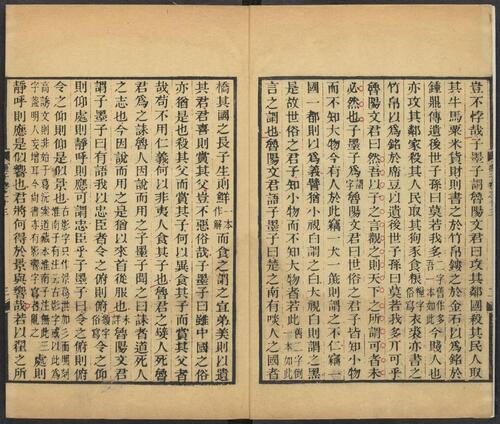 豈不悖哉子墨子謂魯陽文君曰攻其鄰國殺其民人取
其牛馬粟米貨財則書之於竹帛鏤之於金石以爲銘於
鍾鼎傳遺後世子孫曰莫若我多今賤人也
亦攻其鄰家殺其人民取其狗豕食糧衣裘亦書之
竹帛以爲銘於席豆以遺後世子孫曰莫若我多亓可乎
魯陽文君曰然吾以子之言觀之則天下之所謂可者未
必然也子墨子爲魯陽文君曰世俗之君子皆知小物
而不知大物今有人於此竊一犬一彘則謂之不仁竊一
國一都則以爲義譬猶小視白謂之白大視白則謂之黑
是故世俗之君子知小物而不知大物者若此舊二字倒一本如此
言之謂也魯陽文君語子墨子曰楚之南有啖人之國者
橋其國之長子生則鮮一本作解而食之謂之宜弟美則以遺
其君君喜則賞其父豈不惡俗哉子墨子曰雖中國之俗
亦猶是也殺其父而賞其子何以異食其子而賞其父者
哉苟不用仁義何以非夷人食其子也魯君之嬖人死魯
君爲之誄魯人因說而用之子墨子聞之曰誄者道死人
之志也今因說而用之是猶以來首從服也魯陽文君
謂子墨子曰有語我以忠臣者令之俯則俯令之仰
則仰處則靜呼則應可謂忠臣乎子墨子曰令之俯則俯
令之仰則仰是似景也
處則
靜呼則應是似響也君將何得於景與響哉若以翟之所